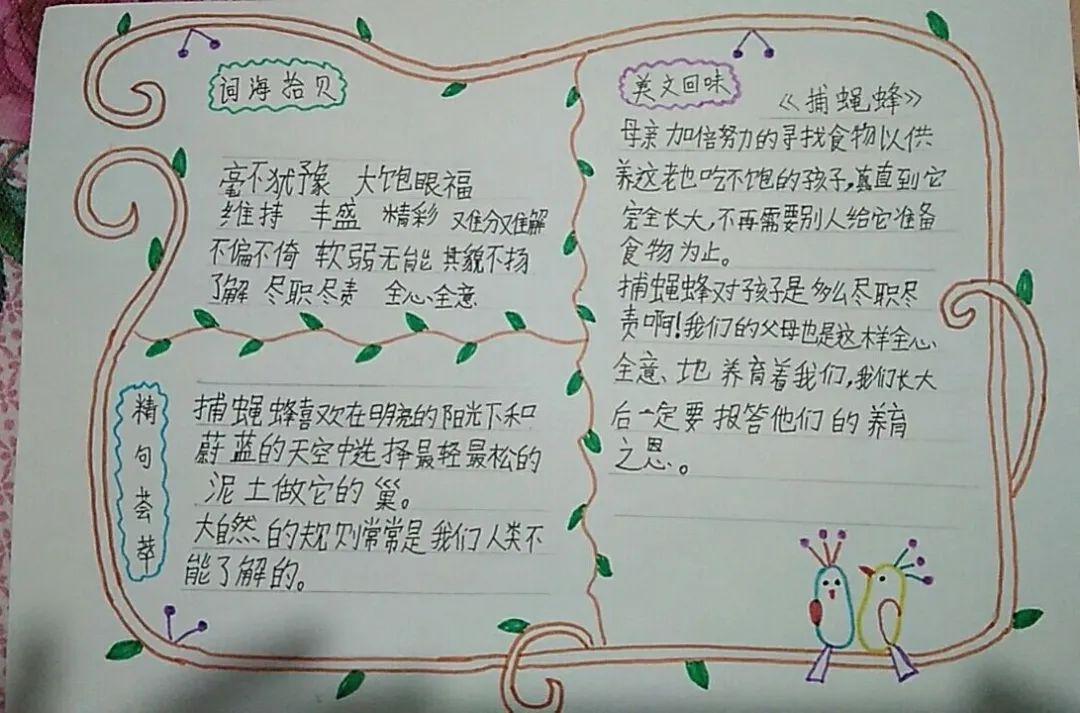 词海拾贝
毫不犹豫 大饱眼福
维持 丰盛 精彩 难分难解
不偏不倚 软弱无能 其貌不扬
了解 尽职尽责 全心全意
精句荟萃
捕蝇蜂喜欢在明亮的阳光下和
蔚蓝的天空中选择最轻最松的
泥土做它的巢。
大自然的规则常常是我们人类不
能了解的。
美文回味
《捕蝇蜂》
母亲加倍努力的寻找食物以供
养这老也吃不饱的孩子,直到它
完全长大,不再需要别人给它准备
食物为止。
捕蝇蜂对孩子是多么尽职尽
责啊!我们的父母也是这样全心
全意、地养育着我们,我们长大
后一定要报答他们的养育
之恩。